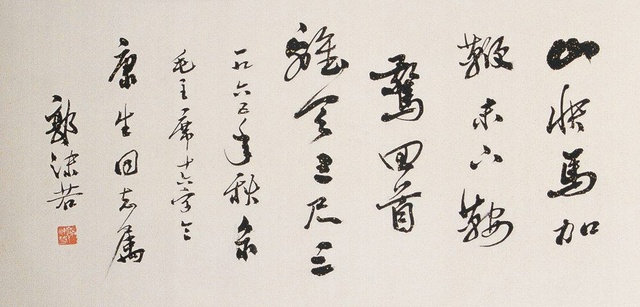 山快馬加
鞭未下鞍
驚回首
離天三尺三
一九六五年秋录
毛主席十六字令
康生同志属
郭沫若